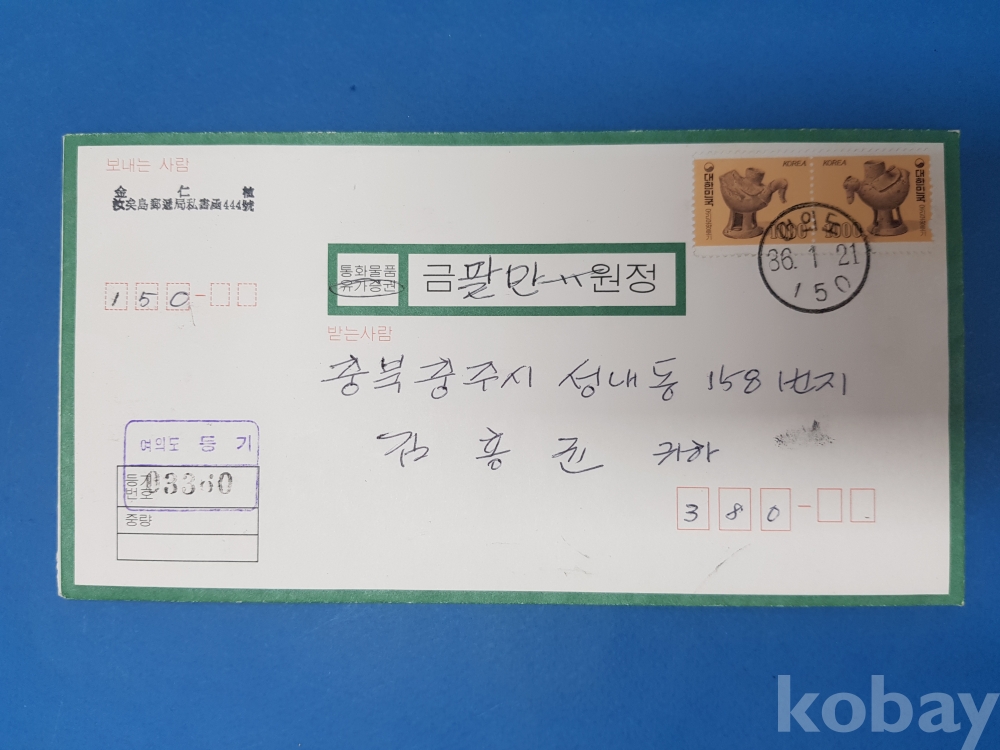 보내는 사람
金 仁 植
汝矣島郵遞局私書函444號
150-
대한민국 KOREA KOREA 대한민국
1000 1000
여의도
86.1.21
150
통화물품
유가증권
금팔만원정
받는사람
충북충주시 성내동 158번지
김흥균 귀하
380-
여의도 등기
등기
번호 03360
중량
kobay